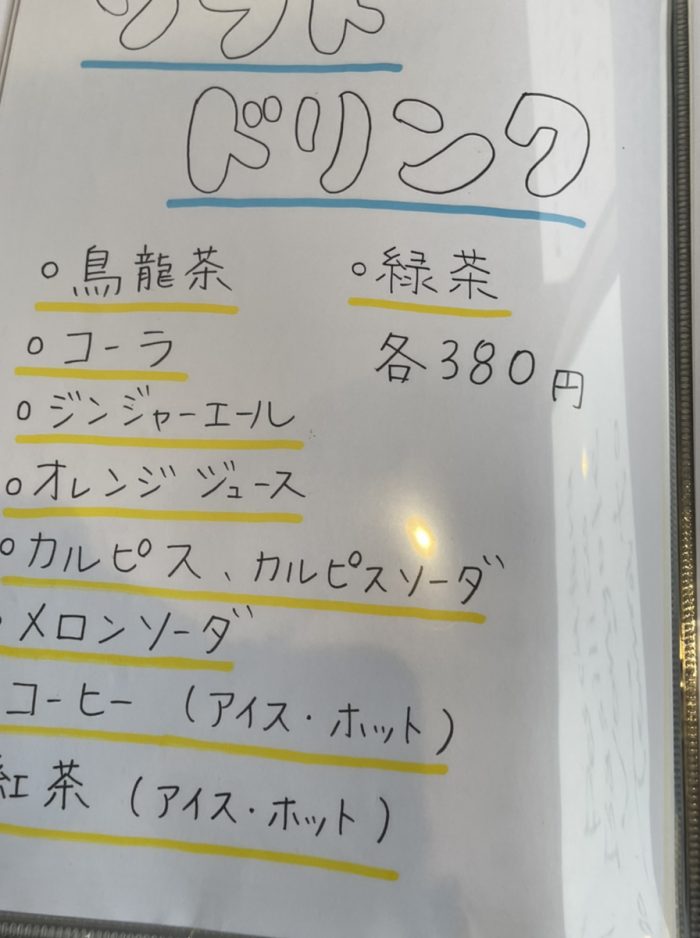 ソフト
ドリンク
○烏龍茶 ○緑茶
○コーラ 各380円
○ジンジャーエール
○オレンジジュース
○カルピス、カルピスソーダ
メロンソーダ
コーヒー (アイス・ホット)
紅茶 (アイス・ホット)